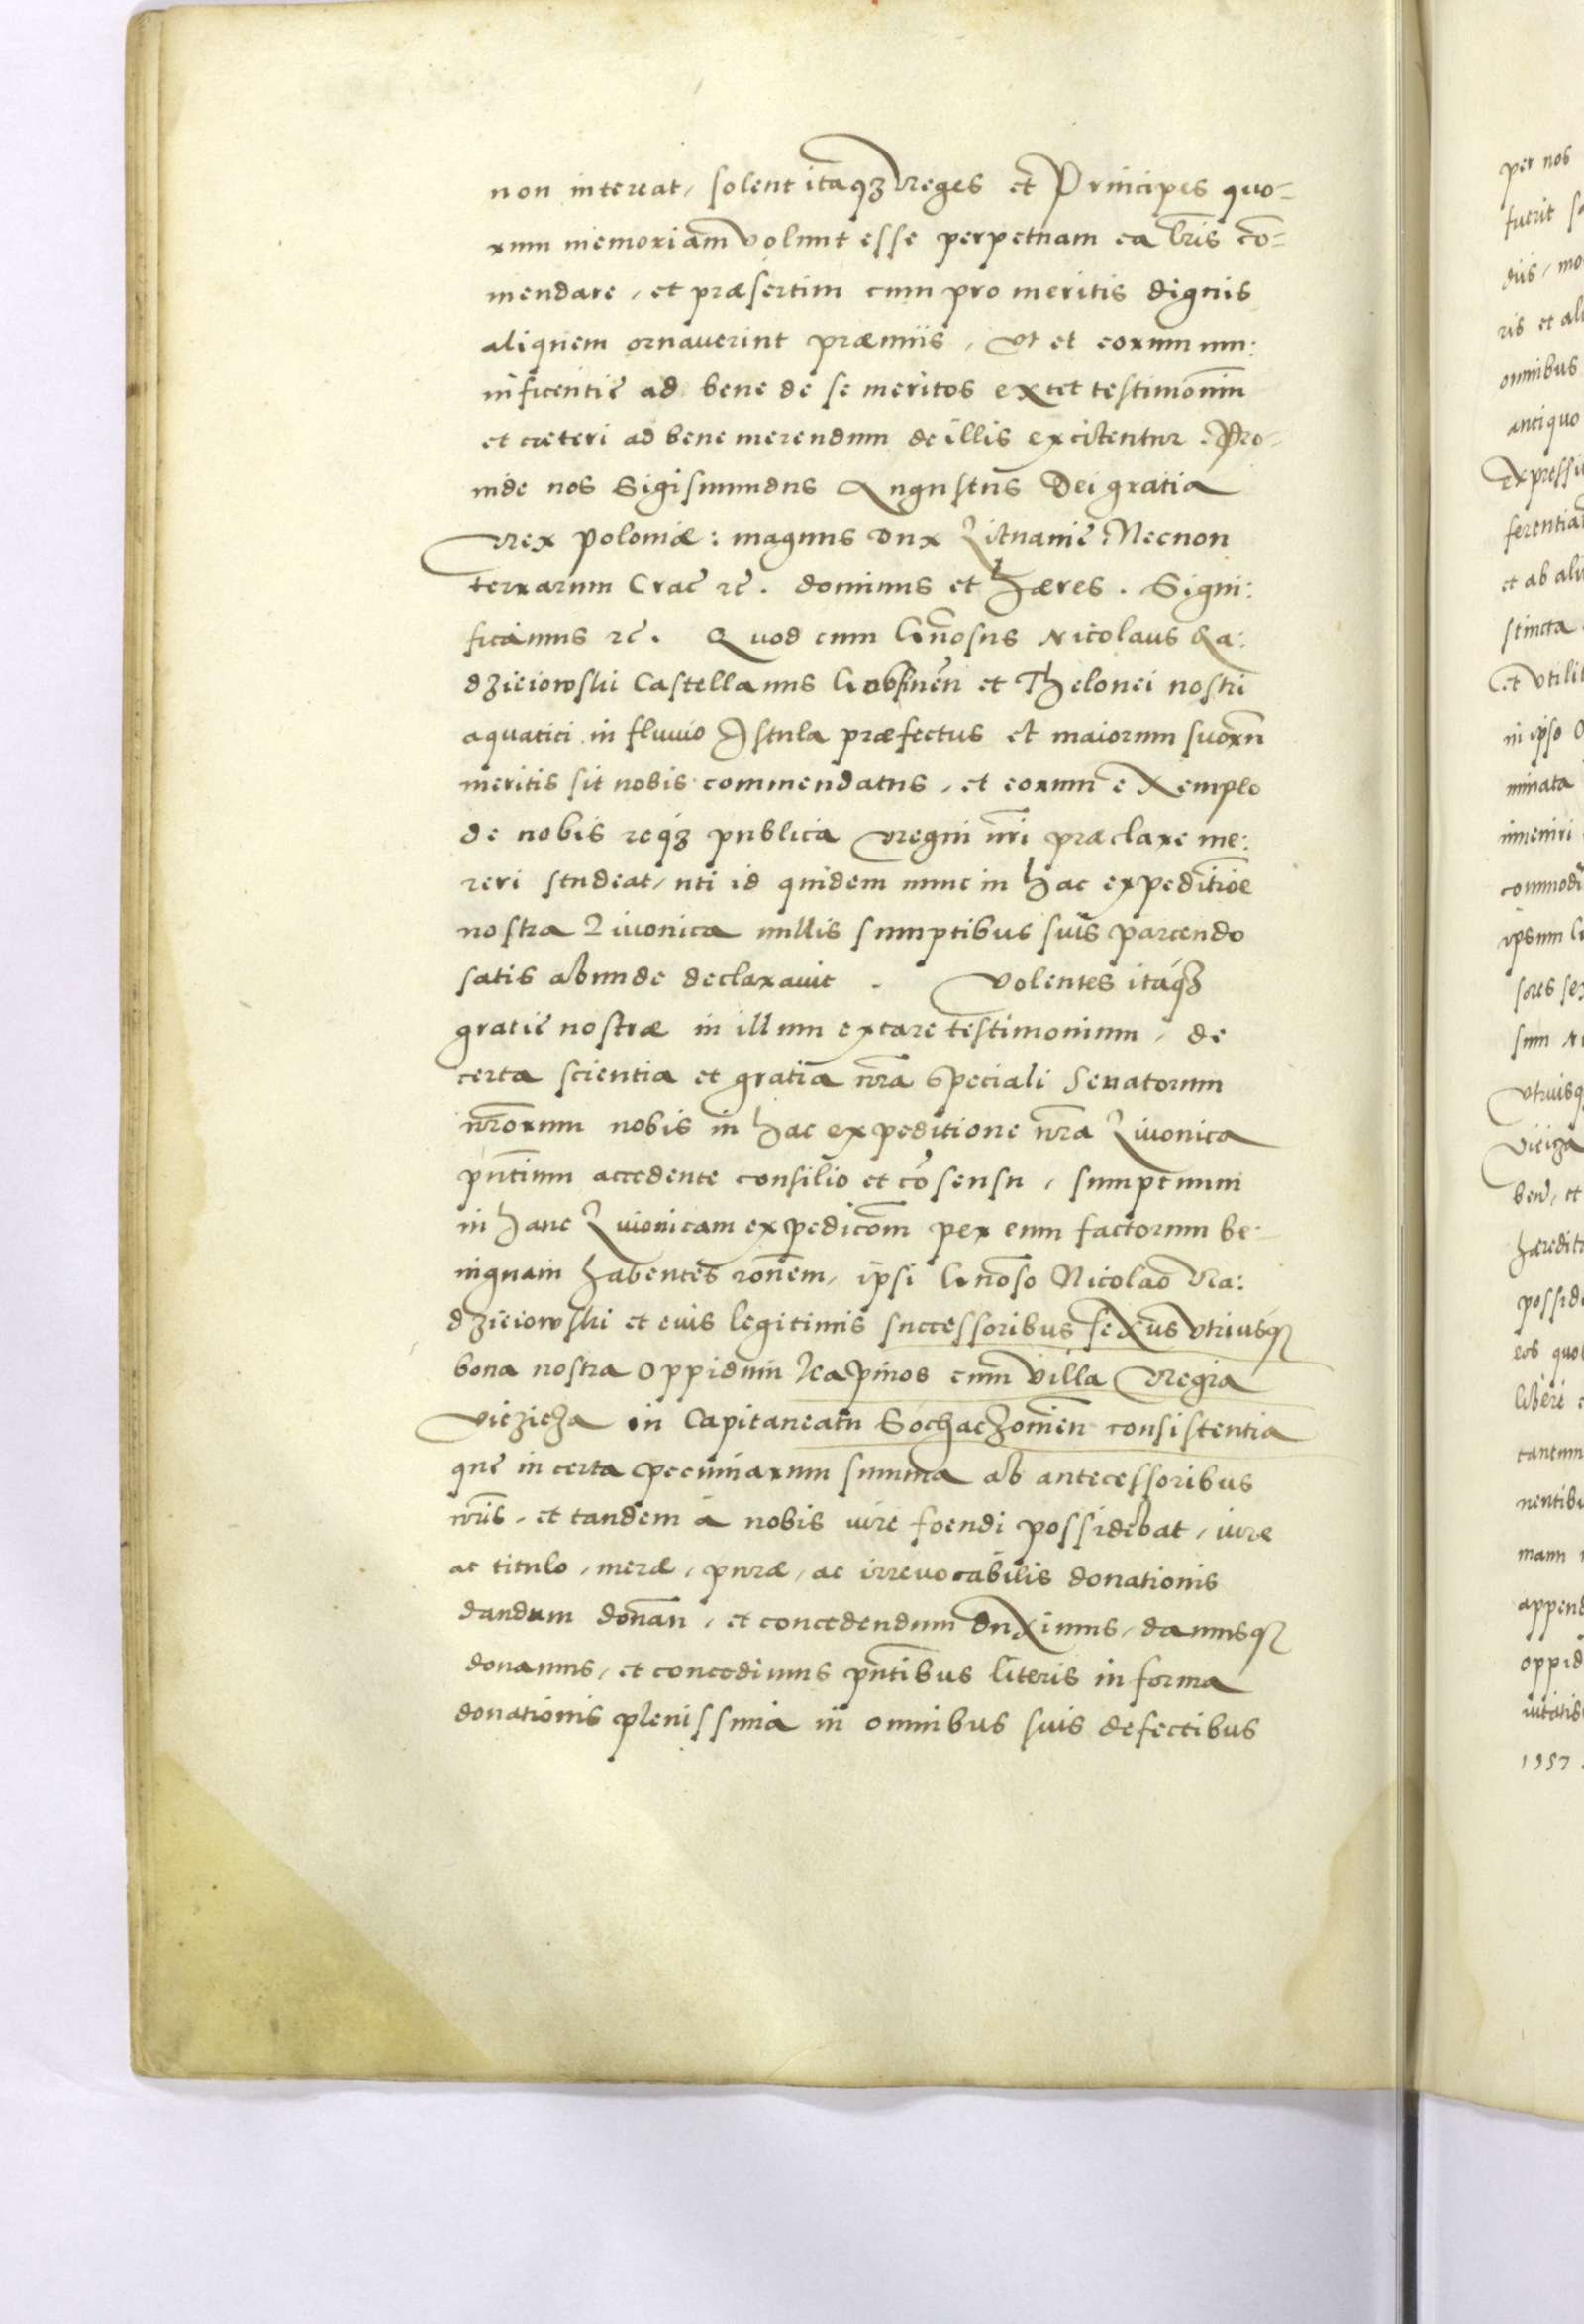 non intereat, solent itaqȝ Reges et Principes quo-
rum memoriam volunt esse perpetuam ea l̃ris com̃-
mendare, et præsertim cum pro meritis dignis
aliquem ornauerint præmiis, Vt et eorum mu:
nificentię ad bene de se meritos extet testimoniũ
et cæteri ad bene merendum de illis excitentur. Pro-
inde nos Sigismundus Augustus Dei gratia
Rex poloniæ: magnus Dux Lituanię Necnon
terrarum Crac̃ ꝛc̃. dominus et Hæres. Signi:
ficamus ꝛc̃. Quod cum Gñosus Nicolaus Ra:
dzieiowski Castellanus Gobineñ et Thelonei nostri
aquatici in fluuio Istula præfectus et maiorum suorũ
meritis sit nobis commendatus, et eorum exemplo
de nobis reiqȝ publica Regni nr̃i præclare me:
reri studeat, uti id quidem nunc in hac expeditiõe
nostra Liuonica nullis sumptibus suis parcendo
satis abunde declarauit. Volentes itaqȝ
gratię nostræ in illum extare testimonium, de
certa scientia et gratia nr̃a speciali Senatorum
nr̃orum nobis in hac expeditione nr̃a Liuonica
pñtium accedente consilio et cõsensu, sumptuum
in hanc Liuonicam expedicõm per eum factorum be-
nignam habentes rõnem, ipsi Gñoso Nicolao Ra:
dzieiowski et eius legitimis successoribus sexus vtriusqȝ
bona nostra Oppidum Kapinos cum villa Regia
Viezicza in Capitaneatu Sochaczouień consistentia
quę in certa pecuniarum summa ab antecessoribus
nr̃is, et tandem à nobis iure foendi possidebat, iure
ac titulo, meræ, puræ, ac irreuocabilis donationis
dandum donañ, et concedendum duximus, damusqȝ
donamus, et concedimus pñtibus literis in forma
donationis plenissima in omnibus suis defectibus
per nos
fuerit
diis, mo
ris et al
omnibus
antiquo
Expressi
ferentia
et ab ali
stincta
et vtilit
in ipso
minata
inueniri
commodi
ipsum
sores se
sum
Vtriusq
Vieiza
beñ, et
hæredit
possid
eos quo
liberè
tantum
nentibu
mann
append
oppid
uitatis
1557.